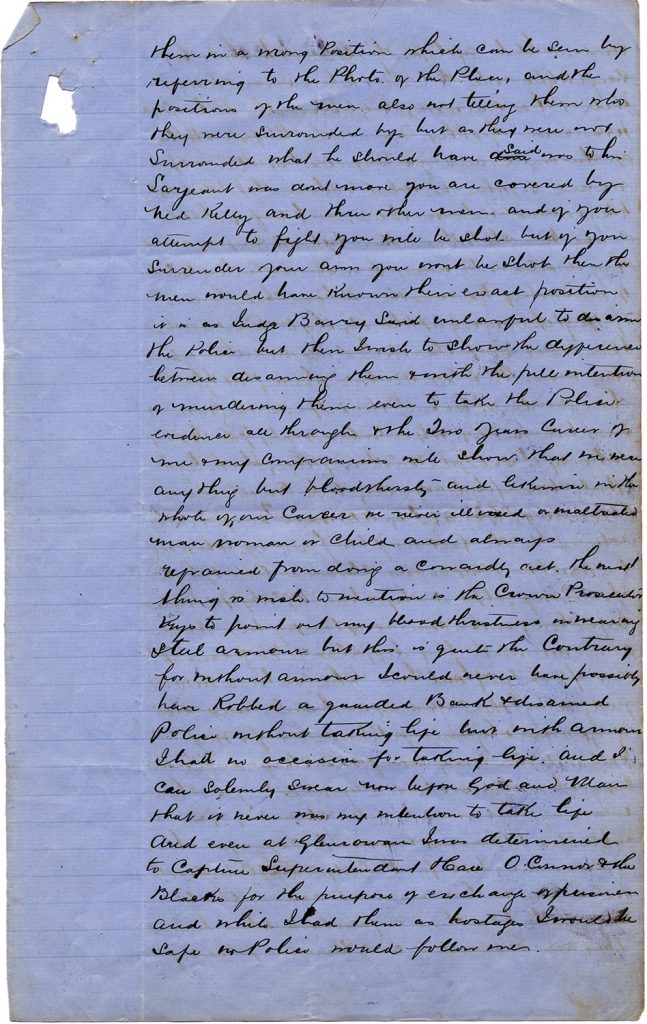 them in a wrong Position which can be seen by
referring to the Photo. of the Place, and the
positions of the men also not telling them who
they were surrounded by. but as they were not
Surrounded what he should have said was to his
Sargeant was dont move you are covered by
Ned Kelly and three other men. and if you
attempt to fight you will be shot. but if you
Surrender your arms you wont be shot then the
men would have known their exact position
it is as Judge Barry Said unlawful to disarm
the Police but then I wish to show the difference
between disarming them & with the full intention
of murdering them even to take the Police
evidence all through & the Two Years Career of
me & my Companions will show that we were
anything but bloodthirsty and likewise in the
whole of our Career we never illused or maltreated
man woman or Child and always
refrained from doing a cowardly act. the next
thing is wish to mention is the Crown Prosecutor
trys to point out my blood thirstness in wearing
Steel armour but this is quite the Contrary
for without armour I could never have possibly
have Robbed a guarded Bank & disarmed
Police without taking life but with armour
I had no occasion for taking life. And I
can Solemnly Swear now before God and Man
that it never was my intention to take life
And even at Glenrowan I was determined
to Capture Superintendant Hare O.Connor & the
Blacks for the purpose of exchange of prisoners
and while I had them as hostages I would be
safe no Police would follow me.